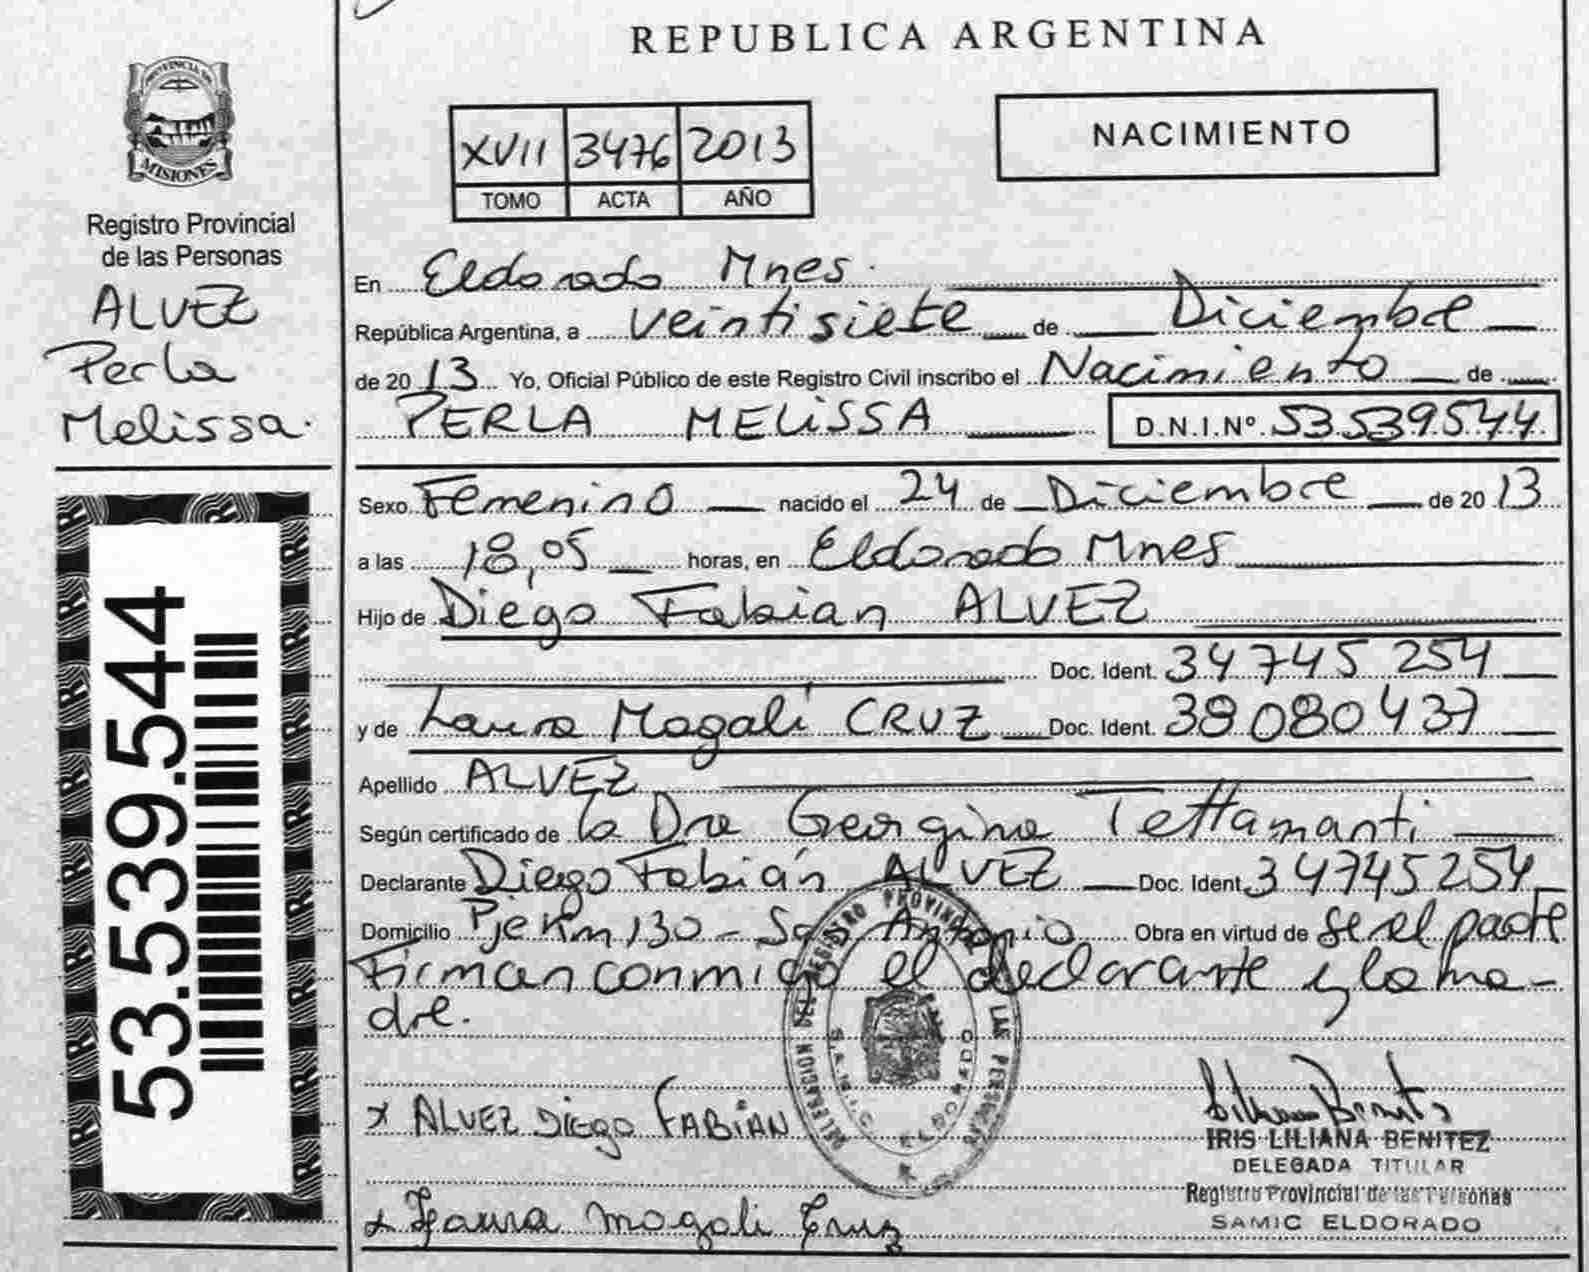 REPUBLICA ARGENTINA
PROVINCIA DE
MISIONES
Registro Provincial
de las Personas
ALVEZ
Perla
Melissa.
53.539.544
XVII 3476 2013
TOMO ACTA AÑO
NACIMIENTO
En Eldorado Mnes.
República Argentina, a veintisiete de Diciembre
de 2013 Yo, Oficial Público de este Registro Civil inscribo el Nacimiento de
PERLA MELISSA D.N.I.Nº 53.539.544
Sexo Femenino nacido el 24 de Diciembre de 2013
a las 18,05 horas, en Eldorado Mnes
Hijo de Diego Fabian ALVEZ
Doc. Ident. 34745254
y de Laura Magalí CRUZ Doc. Ident. 38080437
Apellido ALVEZ
Según certificado de la Dra Georgina Tettamanti
Declarante Diego Fabián ALVEZ Doc. Ident. 34745254
Domicilio Pje Km 130 - San Antonio Obra en virtud de ser el padre
Firman conmigo el declarante y la ma-
dre.
DELEGACION DEL REGISTRO PROVINCIAL DE LAS PERSONAS
S.A.M.I.C. ELDORADO
x ALVEZ DIEGO FABIAN
x Laura Magali Cruz
IRIS LILIANA BENITEZ
DELEGADA TITULAR
Registro Provincial de las Personas
SAMIC ELDORADO